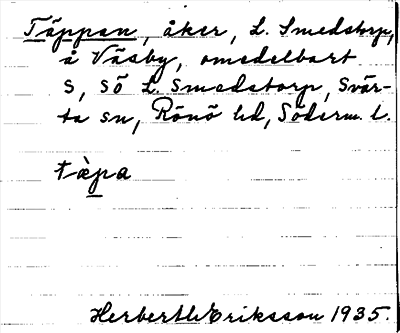 Täppan, åker, L. Smedstorp,
å Väsby, omedelbart
S, SÖ L. Smedstorp, Svär-
ta sn, Rönö hd, Söderm. l.
tæ̀pa
Herbert W Eriksson 1935.